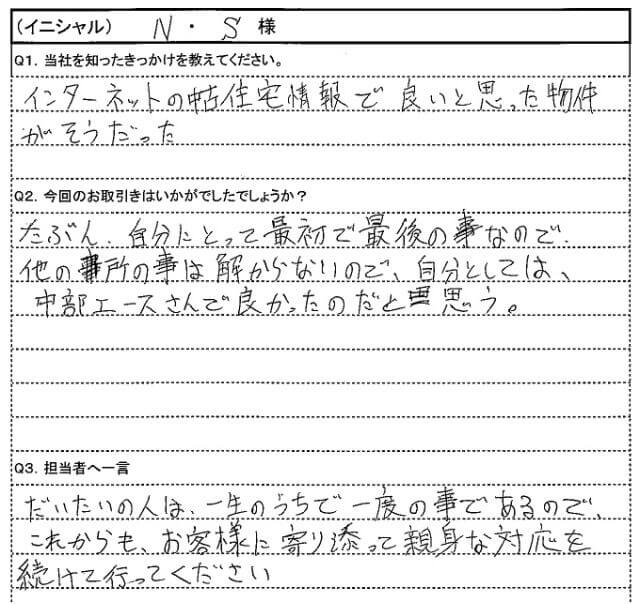 (イニシャル) N・S 様
Q1. 当社を知ったきっかけを教えてください。
インターネットの中古住宅情報で良いと思った物件
がそうだった
Q2. 今回のお取引きはいかがでしたでしょうか？
たぶん、自分にとって最初で最後の事なので、
他の事所の事は解からないので、自分としては、
中部エースさんで良かったのだと思う。
Q3. 担当者へ一言
だいたいの人は、一生のうちで一度の事であるので、
これからも、お客様に寄り添って親身な対応を
続けて行ってください